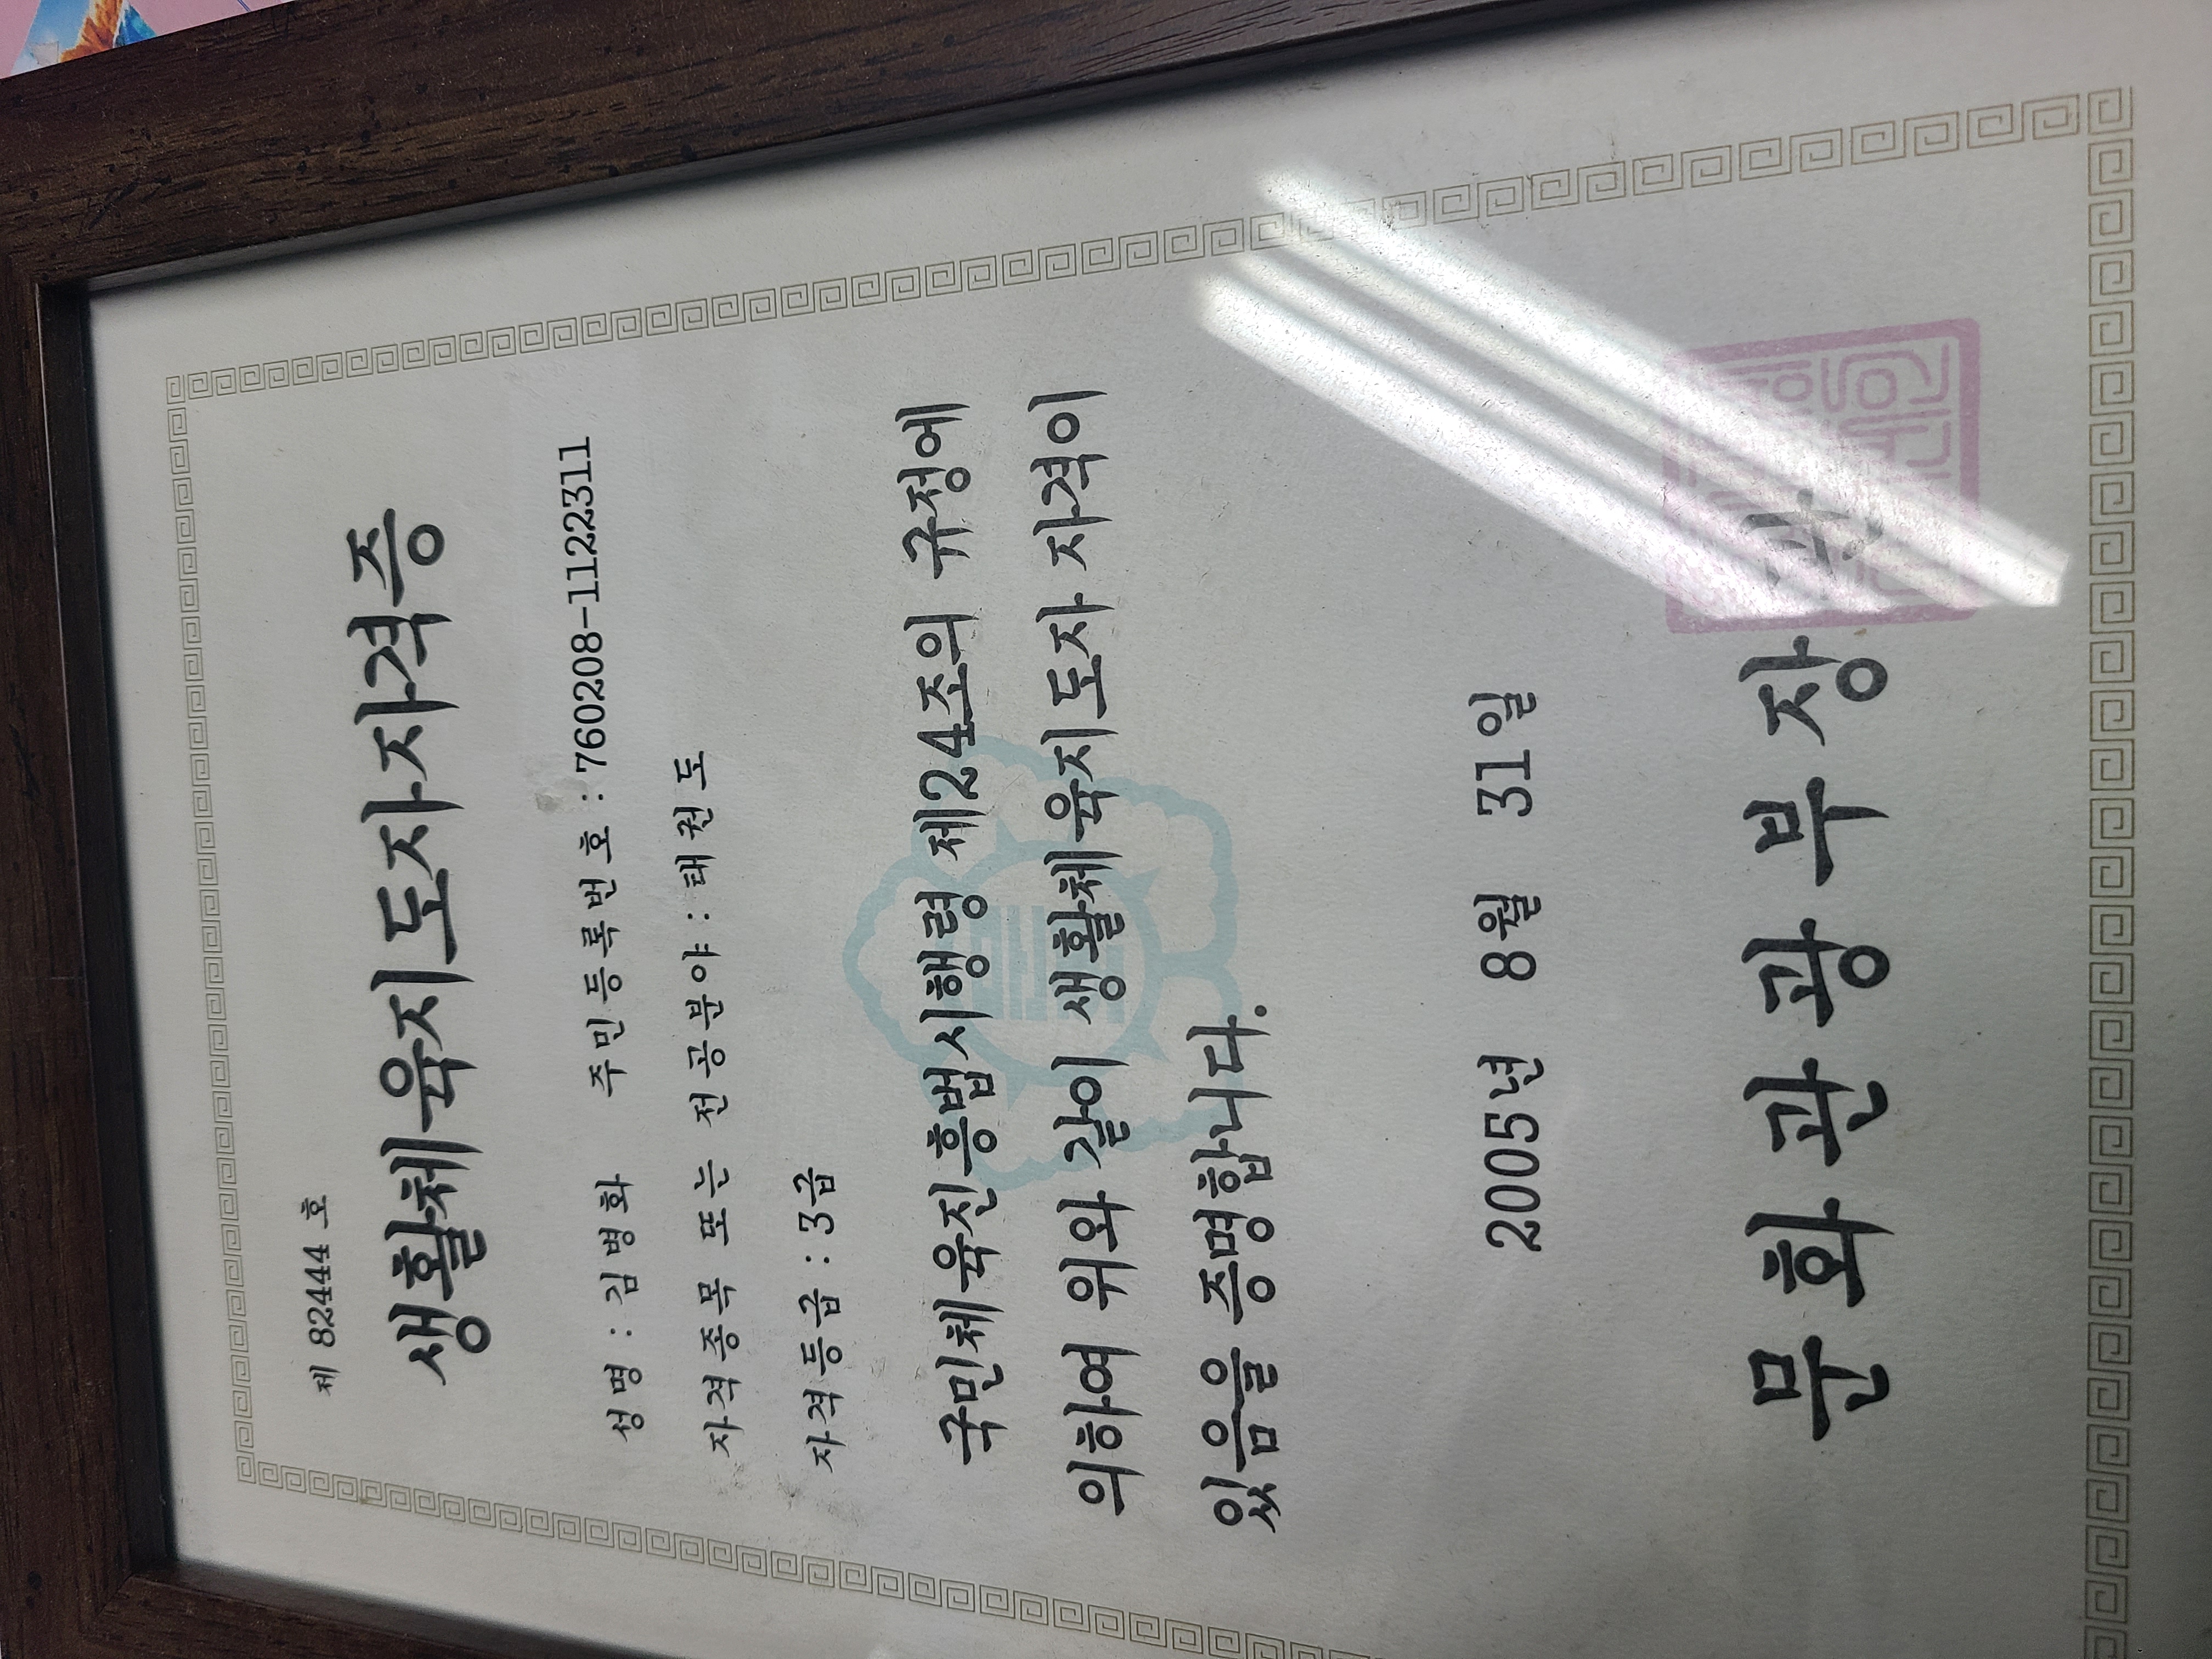 제 82444 호
생활체육지도자자격증
성명 : 김병화 주민등록번호 : 760208-1122311
자격종목 또는 전공분야 : 태권도
자격등급 : 3급
국민체육진흥법시행령 제24조의 규정에
의하여 위와 같이 생활체육지도자 자격이
있음을 증명합니다.
2005년 8월 31일
문화관광부장관